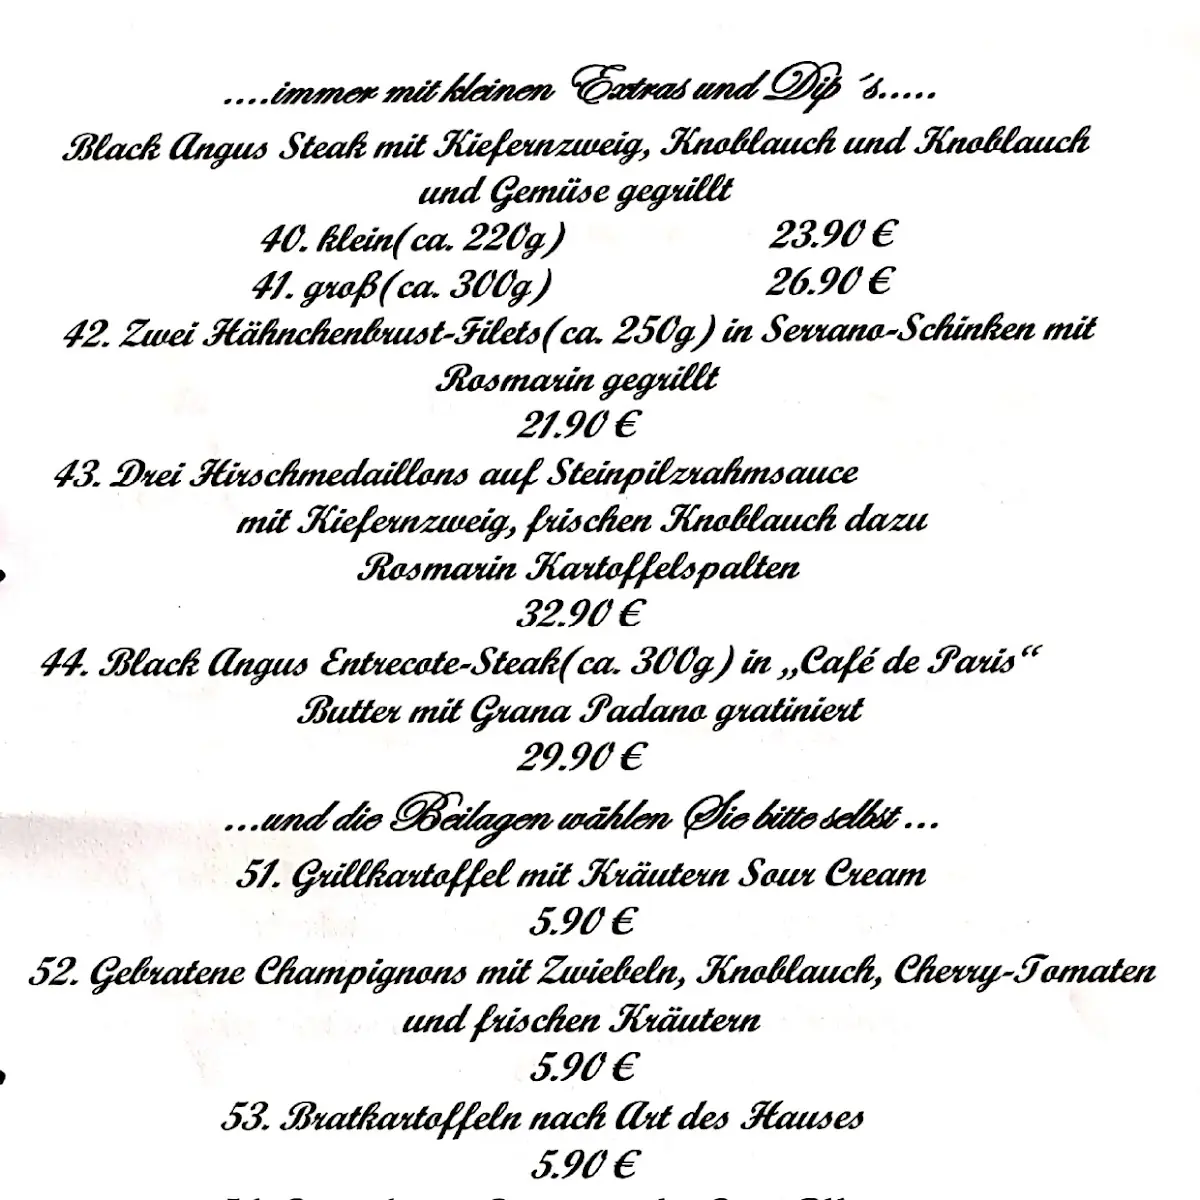 ....immer mit kleinen Extras und Dip ´s.....
Black Angus Steak mit Kiefernzweig, Knoblauch und Knoblauch
und Gemüse gegrillt
40. klein(ca. 220g) 23.90 €
41. groß(ca. 300g) 26.90 €
42. Zwei Hähnchenbrust-Filets(ca. 250g) in Serrano-Schinken mit
Rosmarin gegrillt
21.90 €
43. Drei Hirschmedaillons auf Steinpilzrahmsauce
mit Kiefernzweig, frischen Knoblauch dazu
Rosmarin Kartoffelspalten
32.90 €
44. Black Angus Entrecote-Steak(ca. 300g) in „Café de Paris“
Butter mit Grana Padano gratiniert
29.90 €
...und die Beilagen wählen Sie bitte selbst...
51. Grillkartoffel mit Kräutern Sour Cream
5.90 €
52. Gebratene Champignons mit Zwiebeln, Knoblauch, Cherry-Tomaten
und frischen Kräutern
5.90 €
53. Bratkartoffeln nach Art des Hauses
5.90 €